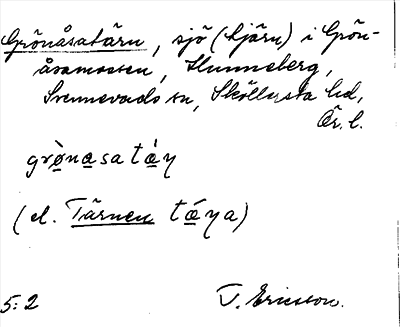 Grönåsatärn, sjö (tjärn) i Grön-
åsamossen, Hunneberg,
Svennevads sn, Sköllersta hd,
Ör. l.
grø̀na̲sa tǽ̲ɳ
(el. Tärnen tǽ̲ɳa)
5:2 T. Ericsson.